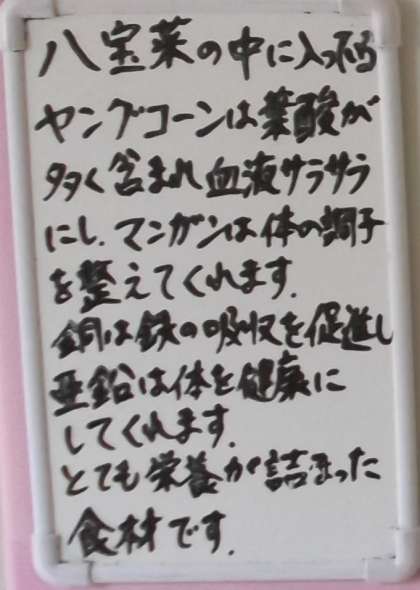 八宝菜の中に入っている
ヤングコーンは葉酸が
多く含まれ血液サラサラ
にし、マンガンは体の調子
を整えてくれます。
銅は鉄の吸収を促進し
亜鉛は体を健康に
してくれます。
とても栄養が詰まった
食材です。